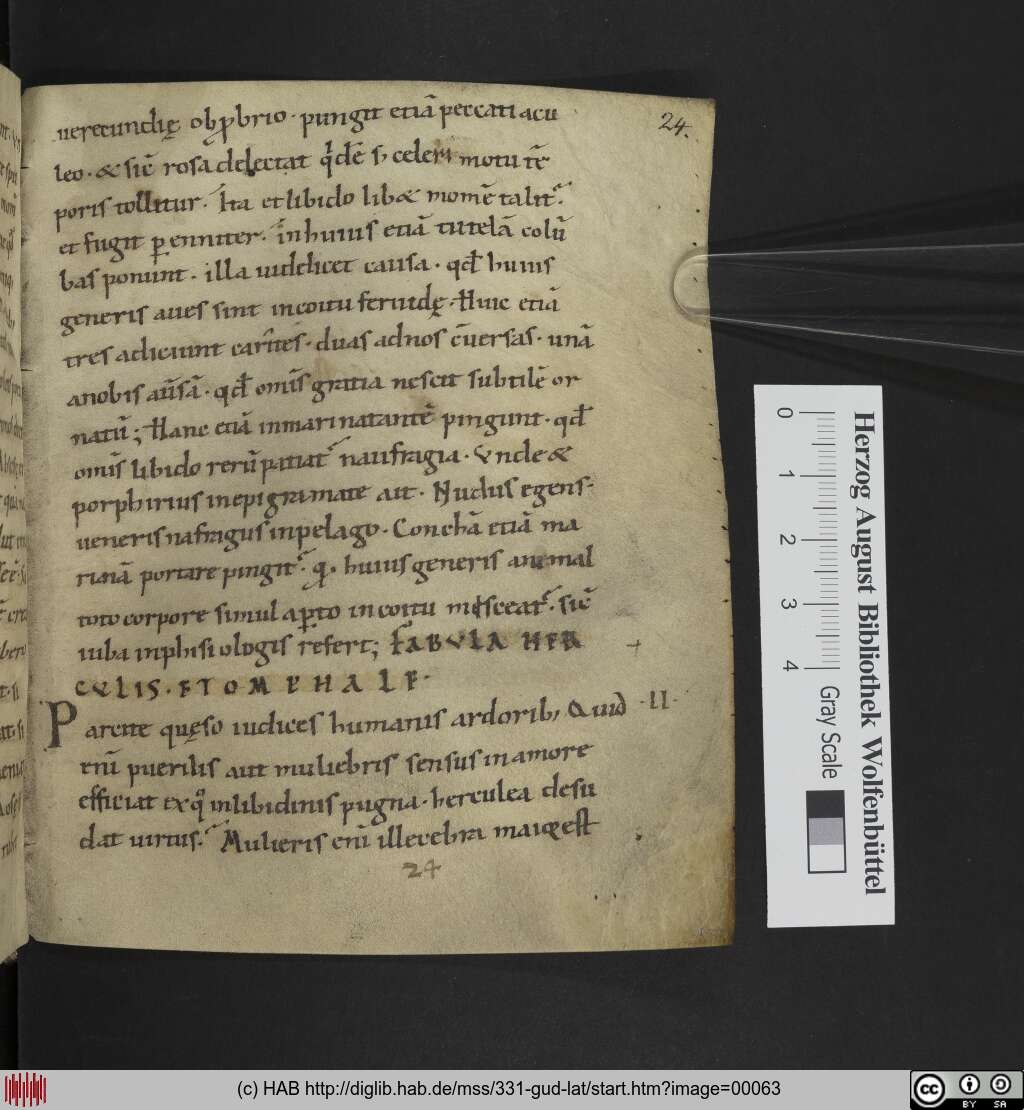 24.
uerecundię obꝓbrio · pungit etiā peccati acu
leo · & sic̄ rosa delectat q͛dē s; celeri motu tē
poris tollitur · Ita et libido lib& momē talit᷑.
et fugit ꝑenniter · in huius etiā tutelā colū
bas ponunt · illa uidelicet causa · qđ huius
generis aues sint in coitu feruidę · Huic etiā
tres adiciunt carites · duas ad nos c̄uersas · unā
a nobis aūsā · qđ om̄is gratia nescit subtilē or
natū; Hanc etiā in mari natantē pingunt · qđ
om̄is libido rerū patiat᷑ naufragia · Vnde &
porphirius in epigramate ait · Nudus egens ·
ueneris nafragus in pelago · Conchā etiā ma
rinā portare pingit᷑. q̥ · huius generis animal
toto corpore simul aꝑto in coitu misceat᷑ · sic̄
iuba in phisiologis refert; FABVLA HER
CVLIS · ET OMPHALE ·
Parcite quęso iudices humanis ardorib; Quid · II ·
eni̅ puerilis aut muliebris sensus in amore
efficiat ex q̊ in libidinis pugna · herculea desu
dat uirtus. Mulieris eni̅ illecebra maior est
24
0
1
2
3
4
Herzog August Bibliothek Wolfenbüttel
Gray Scale
(c) HAB http://diglib.hab.de/mss/331-gud-lat/start.htm?image=00063
cc
BY SA